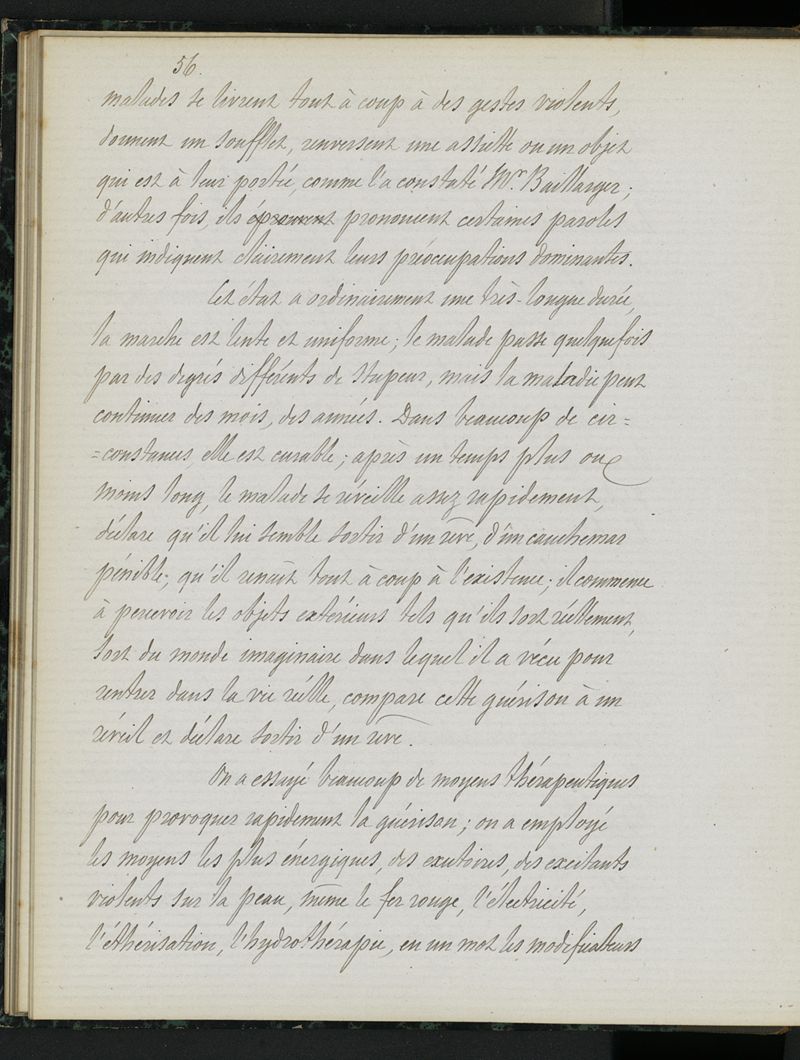 56.
malades se livrent tout à coup à des gestes violents,
donnent un soufflet, renversent une assiette ou un objet
qui est à leur portée, comme l'a constaté Mr. Baillarger ;
d'autres fois, ils éprouvent prononcent certaines paroles
qui indiquent clairement leurs préoccupations dominantes.
Cet état a ordinairement une très-longue durée,
la marche est lente et uniforme ; le malade passe quelquefois
par des degrés différents de stupeur, mais la maladie peut
continuer des mois, des années. Dans beaucoup de cir=
=constances, elle est curable ; après un temps plus ou
moins long, le malade se réveille assez rapidement,
déclare qu'il lui semble sortir d'un rêve, d'un cauchemar
pénible ; qu'il renait tout à coup à l'existence ; il commence
à percevoir les objets extérieurs tels qu'ils sont réellement,
sort du monde imaginaire dans lequel il a vécu pour
rentrer dans la vie réelle, compare cette guérison à un
réveil et déclare sortir d'un rêve.
On a essayé beaucoup de moyens thérapeutiques
pour provoquer rapidement la guérison ; on a employé
les moyens les plus énergiques, des exutoires, des excitants
violents sur la peau, même le fer rouge, l'électricité,
l'éthérisation, l'hydrothérapie, en un mot les modificateurs